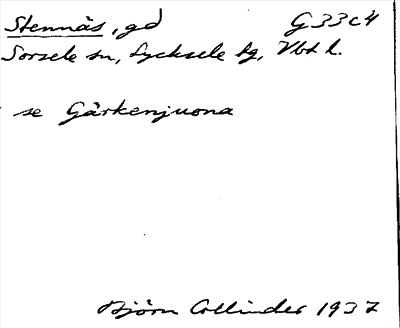 Stennäs, gd G33c4
Sorsele sn, Lycksele tg, Vbt l.
se Gårkenjuona
Björn Collinder 1937